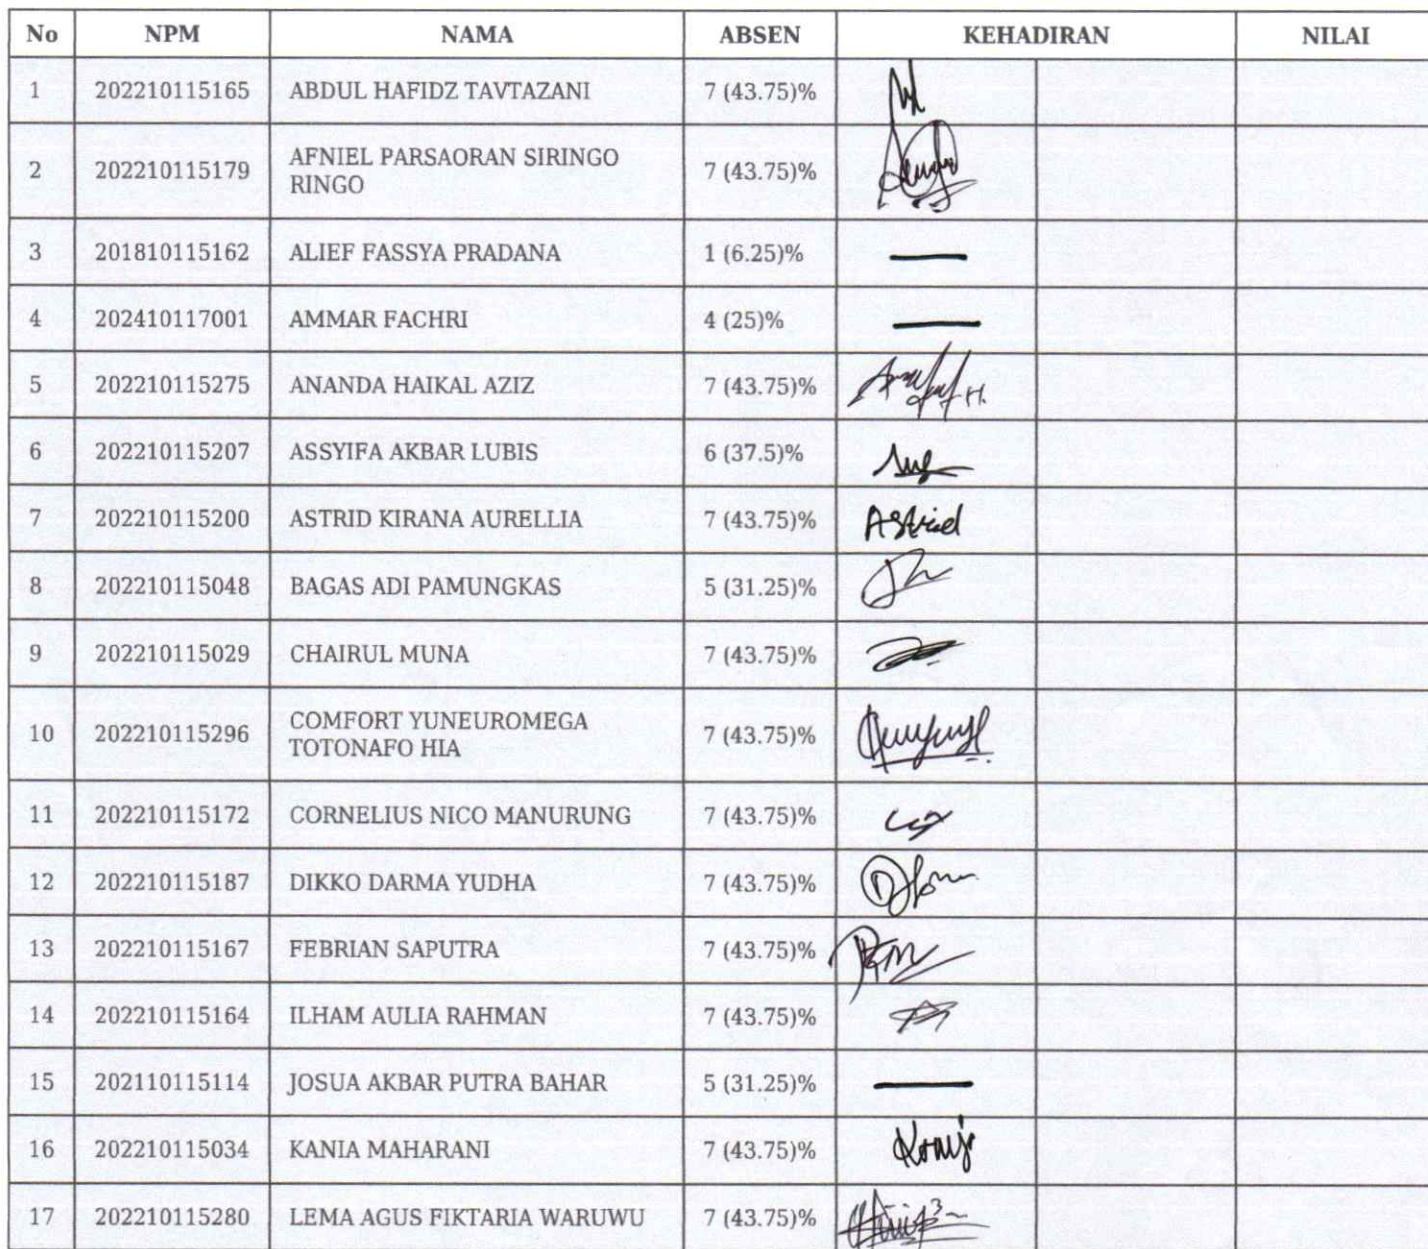 No NPM NAMA ABSEN KEHADIRAN NILAI
1 202210115165 ABDUL HAFIDZ TAVTAZANI 7 (43.75)%
2 202210115179 AFNIEL PARSAORAN SIRINGO RINGO 7 (43.75)%
3 201810115162 ALIEF FASSYA PRADANA 1 (6.25)% —
4 202410117001 AMMAR FACHRI 4 (25)% —
5 202210115275 ANANDA HAIKAL AZIZ 7 (43.75)%
6 202210115207 ASSYIFA AKBAR LUBIS 6 (37.5)%
7 202210115200 ASTRID KIRANA AURELLIA 7 (43.75)% Astrid
8 202210115048 BAGAS ADI PAMUNGKAS 5 (31.25)%
9 202210115029 CHAIRUL MUNA 7 (43.75)%
10 202210115296 COMFORT YUNEUROMEGA TOTONAFO HIA 7 (43.75)%
11 202210115172 CORNELIUS NICO MANURUNG 7 (43.75)%
12 202210115187 DIKKO DARMA YUDHA 7 (43.75)%
13 202210115167 FEBRIAN SAPUTRA 7 (43.75)%
14 202210115164 ILHAM AULIA RAHMAN 7 (43.75)%
15 202110115114 JOSUA AKBAR PUTRA BAHAR 5 (31.25)% —
16 202210115034 KANIA MAHARANI 7 (43.75)%
17 202210115280 LEMA AGUS FIKTARIA WARUWU 7 (43.75)%